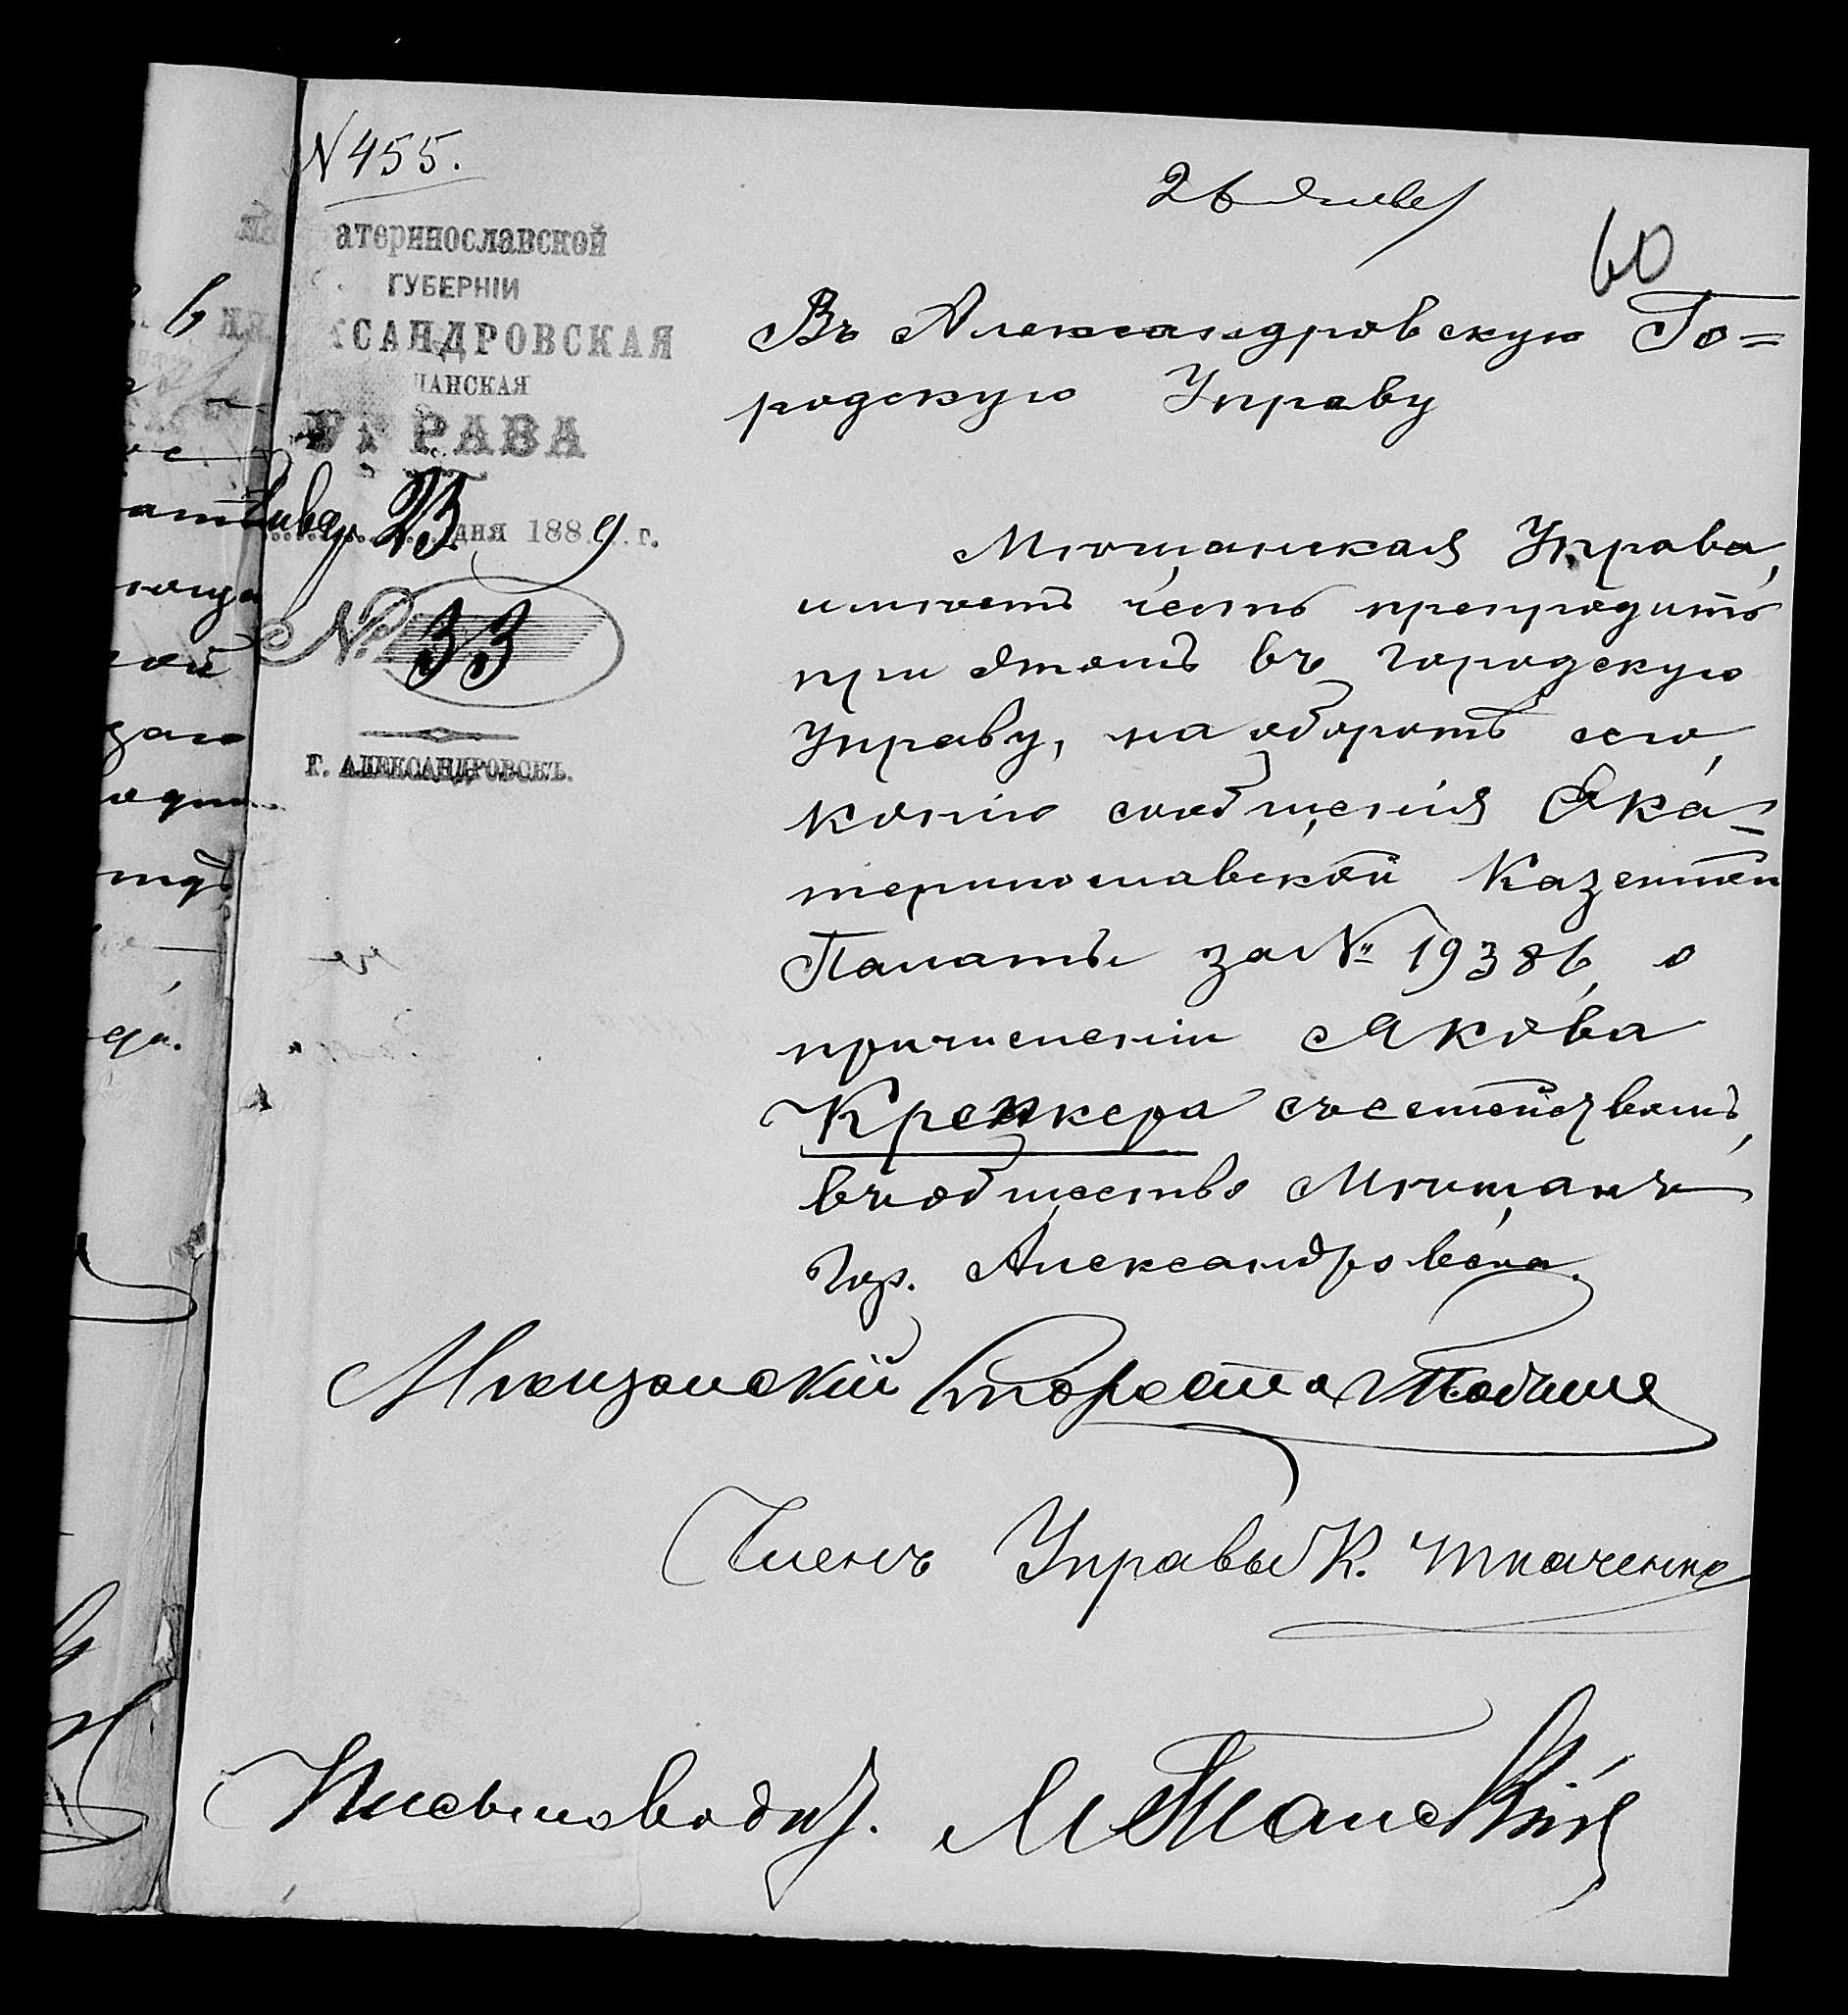 N 455.
26 Янве
60
атеринославской
ГУБЕРНІИ
КСАНДРОВСКАЯ
ЩАНСКАЯ
УПРАВА
Январ 25 дня 1889 г.
№ 33
Г. АЛЕКСАНДРОВСКЪ.
Въ Александровскую Го=
родскую Управу
Мѣщанская Управа,
имѣетъ честь препродить
при этомъ въ городскую
управу, на оборотѣ сего,
копію сообщенія Ека=
теринославской Казенной
Палаты за № 19386, о
причисленіи Якова
Крейкера съ семействомъ,
въ общество Мѣщанъ
гор. Александровска.
Мѣщанскій Староста
Членъ Управы К. Ткаченко
Письмоводит.